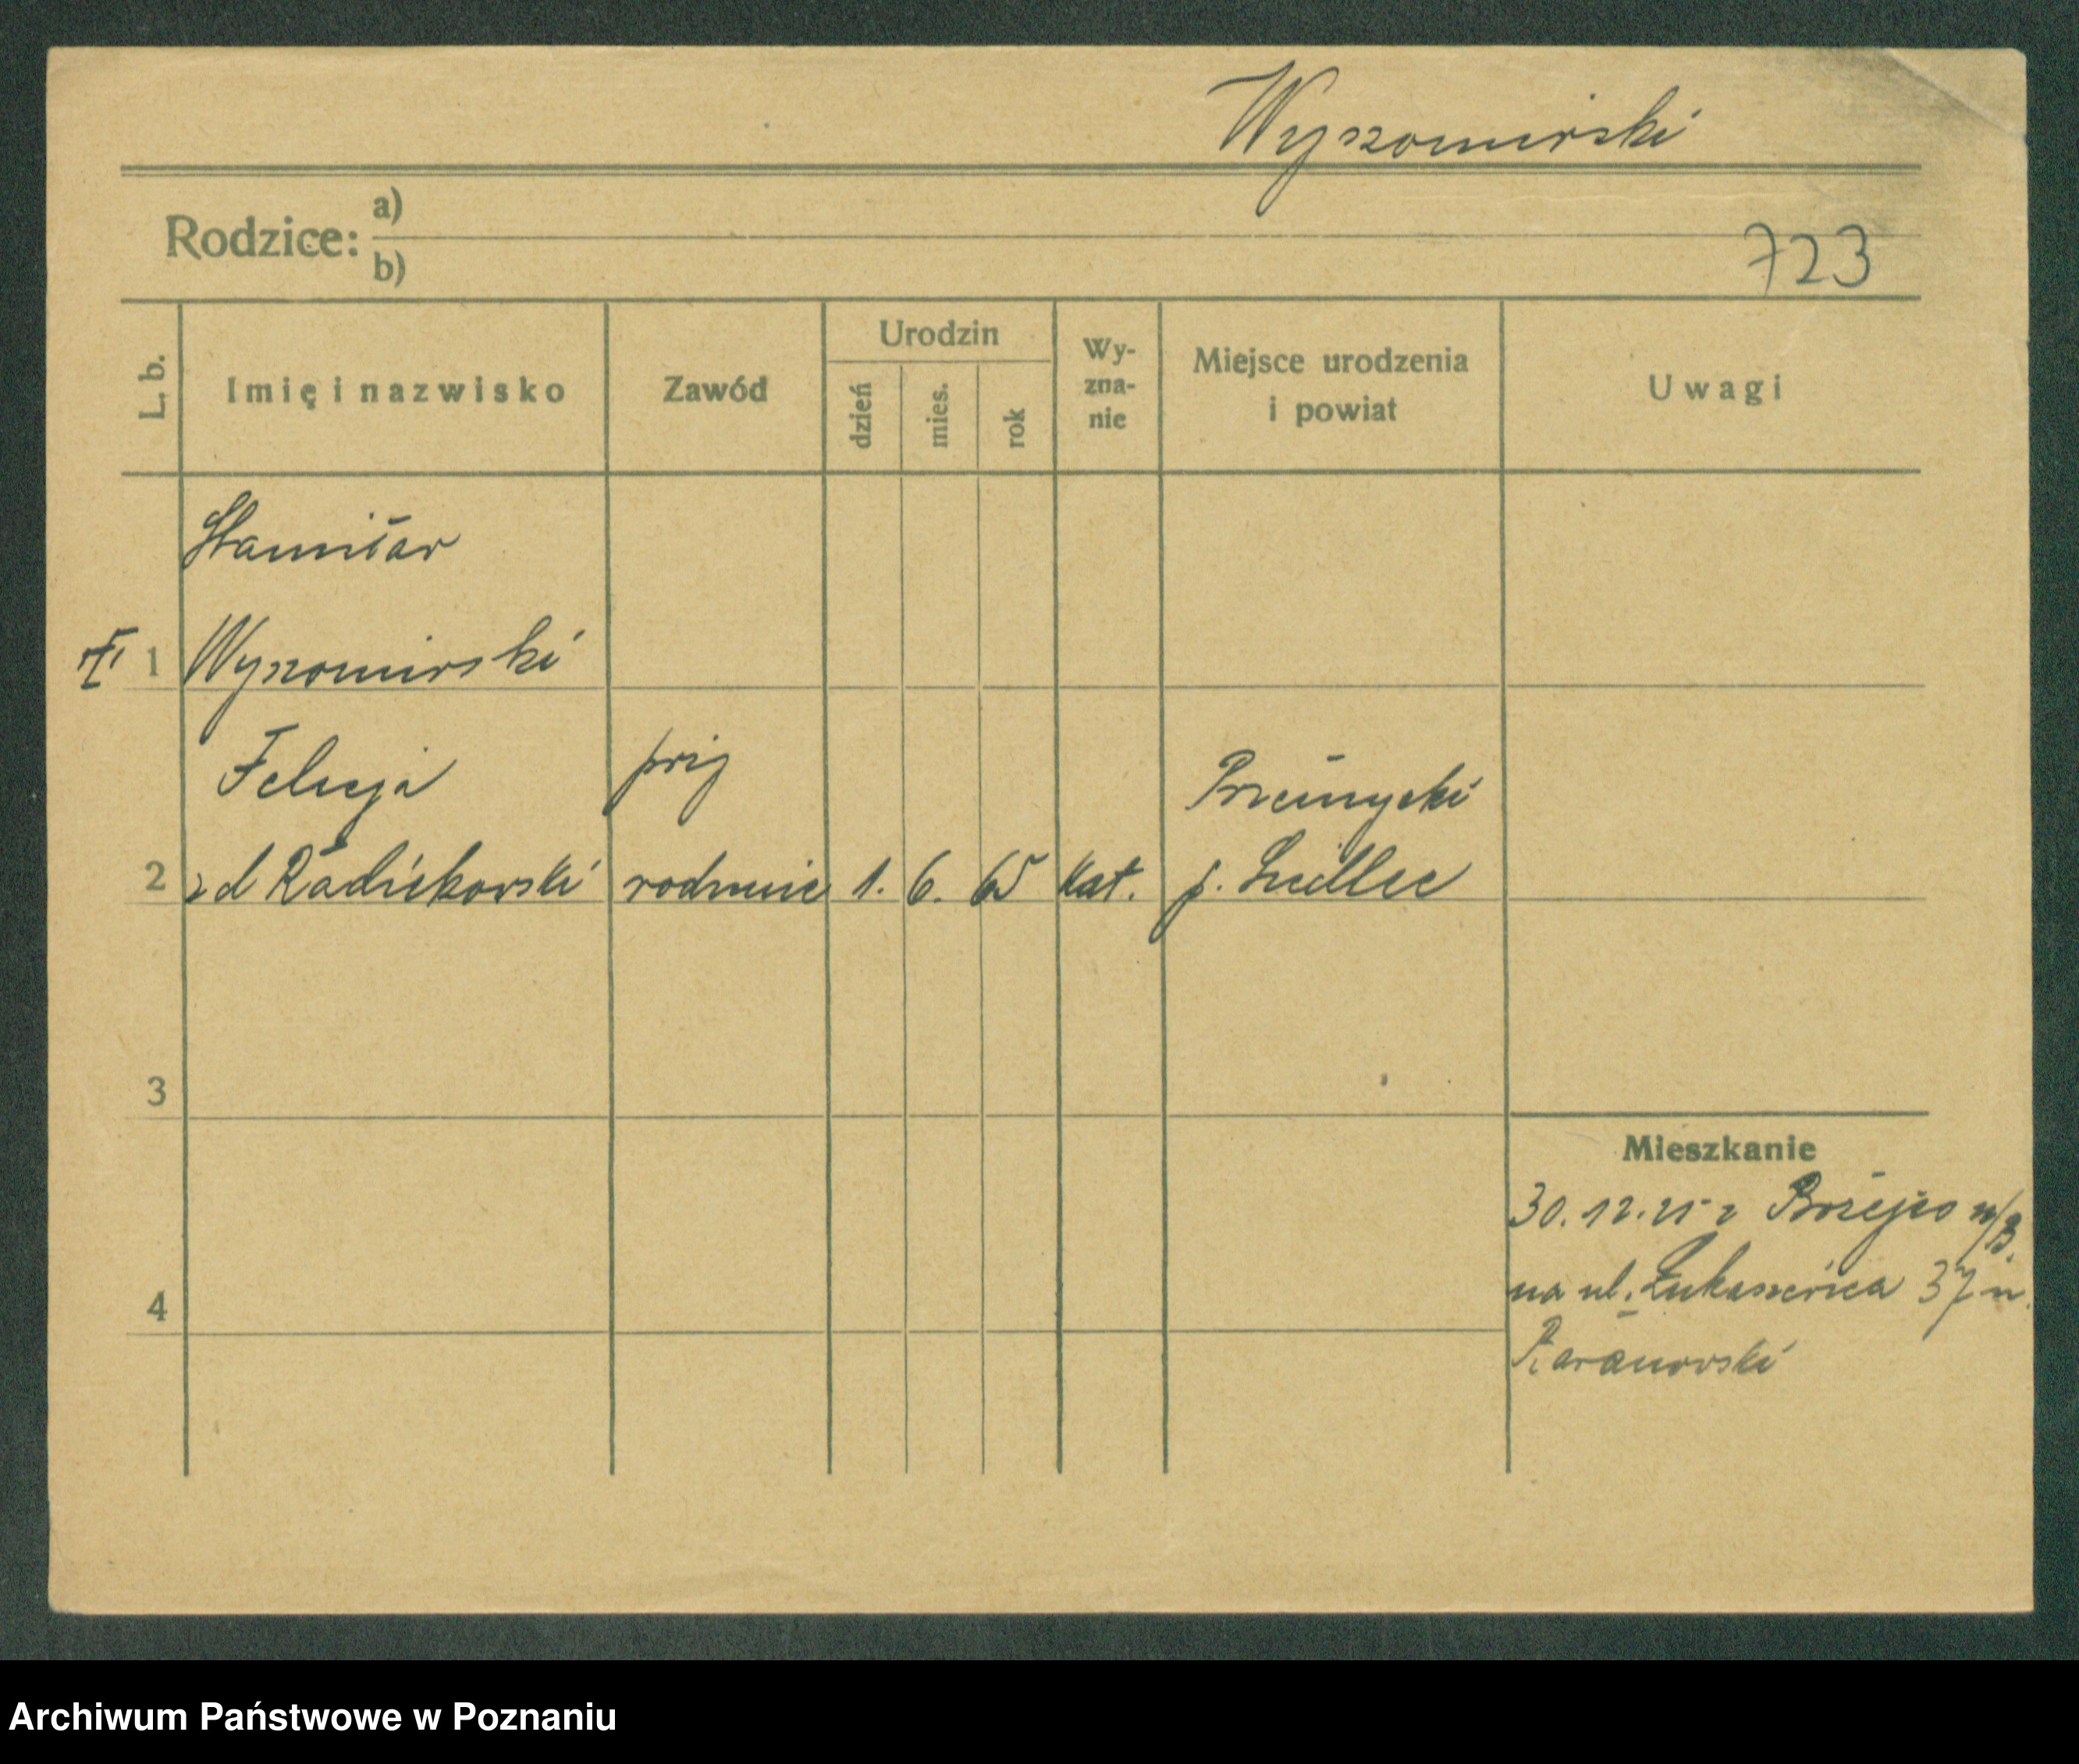 Wyszomirski
Rodzice: a)
b)
723
L. b.
Imię i nazwisko
Zawód
Urodzin
dzień
mies.
rok
Wy-
zna-
nie
Miejsce urodzenia
i powiat
Uwagi
Stanisław
1 Wyszomirski
Felicja przy
Przesmycki
2 zd Radzikowski rodzinie 1. 6. 65 kat. p. Siedlec
3
Mieszkanie
30. 12. 25 z n/B.
na ul. Łukasiewicza 37 u.
4
Baranowski
Archiwum Państwowe w Poznaniu